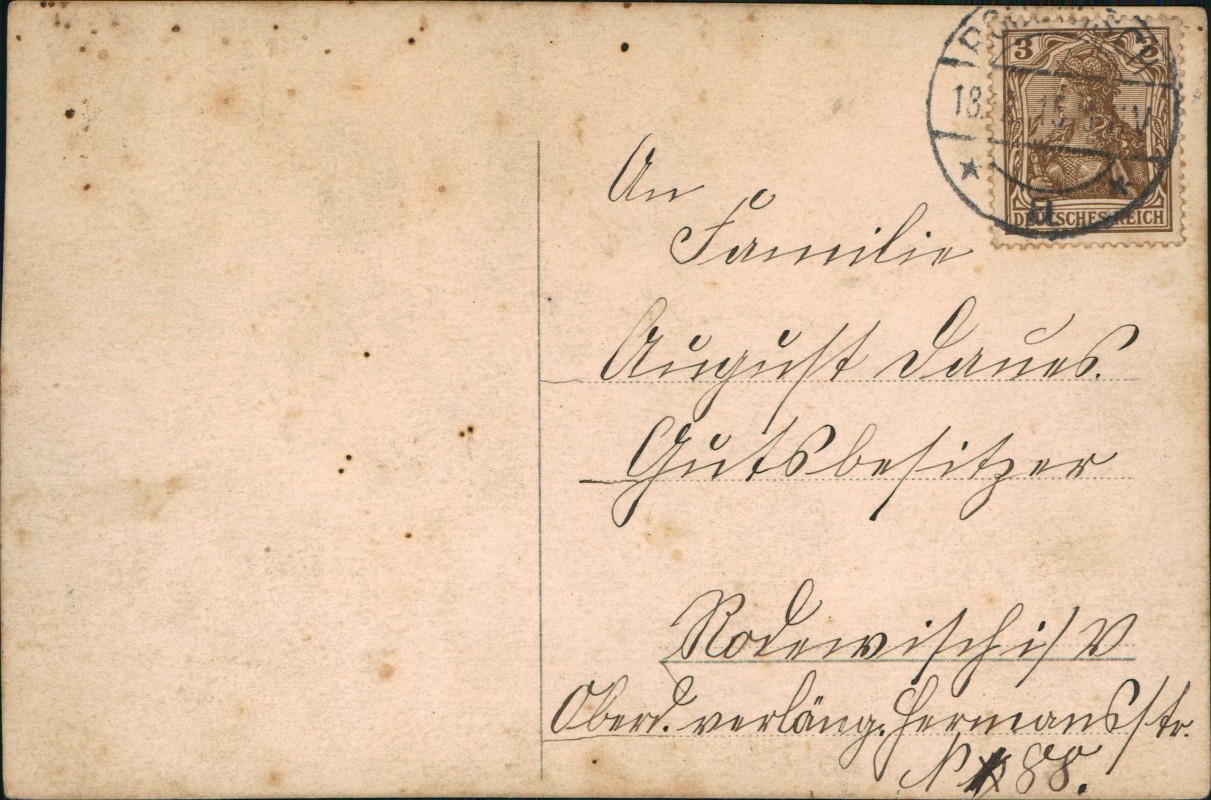 3
DEUTSCHES REICH
An
Familie
August Daues.
Gutsbesitzer
Rodewisch i/V
Oberd. verläng. Hermansstr.
N 88.